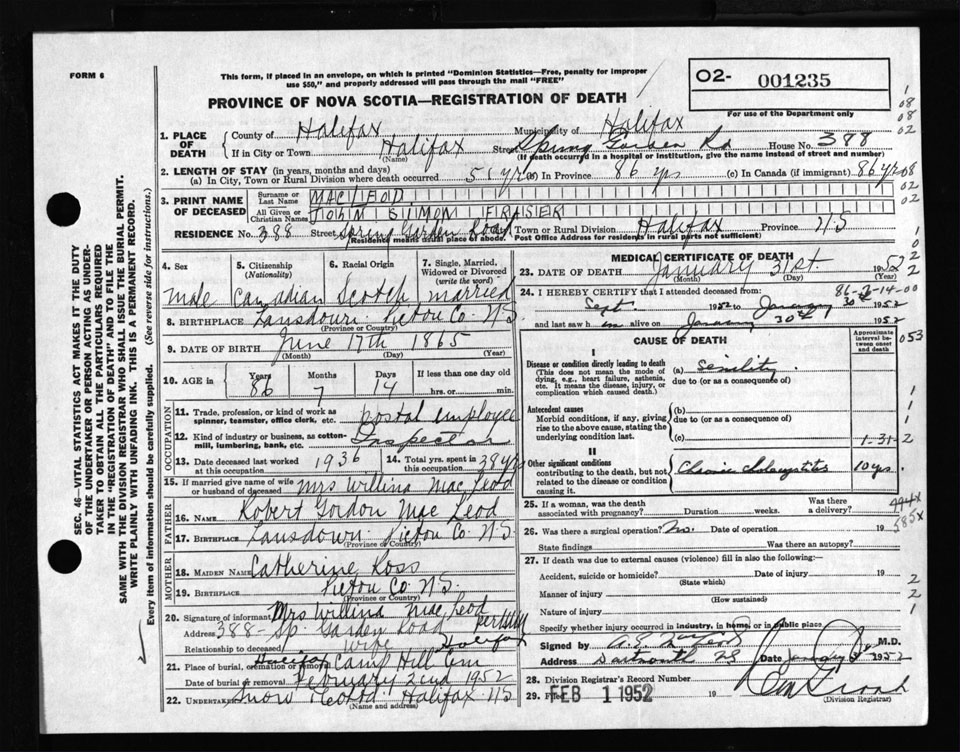 FORM 6
This form, if placed in an envelope, on which is printed "Dominion Statistics—Free, penalty for improper
use $50," and properly addressed will pass through the mail "FREE"
PROVINCE OF NOVA SCOTIA—REGISTRATION OF DEATH
O2- 001235
For use of the Department only
1. PLACE OF DEATH
County of Halifax Municipality of Halifax
If in City or Town Halifax Street Spring Garden Rd House No. 388
(Name) (If death occurred in a hospital or institution, give the name instead of street and number)
2. LENGTH OF STAY (in years, months and days)
(a) In City, Town or Rural Division where death occurred 51 yrs (b) In Province 86 yrs (c) In Canada (if immigrant) 86 yrs
3. PRINT NAME OF DECEASED
Surname or Last Name MACLEOD
All Given or Christian Names JOHN SIMON FRASER
RESIDENCE No. 388 Street Spring Garden Road City, Town or Rural Division Halifax Province N.S
(Residence means usual place of abode. Post Office Address for residents in rural parts not sufficient)
4. Sex
5. Citizenship (Nationality)
6. Racial Origin
7. Single, Married, Widowed or Divorced (write the word)
Male Canadian Scotch married
8. BIRTHPLACE Lansdown Pictou Co. N S
(Province or Country)
9. DATE OF BIRTH June 17th 1865
(Month) (Day) (Year)
10. AGE in Years Months Days If less than one day old
86 7 14 hrs. or min.
OCCUPATION
11. Trade, profession, or kind of work as spinner, teamster, office clerk, etc. postal employee
12. Kind of industry or business, as cotton-mill, lumbering, bank, etc. Inspector
13. Date deceased last worked at this occupation 1936
14. Total yrs. spent in this occupation 38 yrs
15. If married give name of wife or husband of deceased Mrs Willina Mac Leod
FATHER
16. NAME Robert Gordon Mac Leod
17. BIRTHPLACE Lansdown Pictou Co. N S
(Province or Country)
MOTHER
18. MAIDEN NAME Catherine Ross
19. BIRTHPLACE Pictou Co. N S.
(Province or Country)
20. Signature of informant Mrs Willina Mac Leod
Address 388- Sp. Garden Road Halifax
Relationship to deceased wife
21. Place of burial, cremation or removal Halifax Camp Hill Cem
Date of burial or removal February 2nd 1952
22. UNDERTAKER Snow & Co Ltd Halifax N S
(Name and Address)
MEDICAL CERTIFICATE OF DEATH
23. DATE OF DEATH January 31st. 1952
(Month) (Day) (Year)
86-7-14-00
24. I HEREBY CERTIFY that I attended deceased from:
Sept. 1952 to January 30th 1952
and last saw him alive on January 30th 1952
CAUSE OF DEATH
Approximate interval between onset and death
I
Disease or condition directly leading to death
(This does not mean the mode of dying, e.g., heart failure, asthenia, etc. It means the disease, injury, or complication which caused death.)
(a) Senility.
due to (or as a consequence of)
Antecedent causes
Morbid conditions, if any, giving rise to the above cause, stating the underlying condition last.
(b)
due to (or as a consequence of)
(c) 1-31-2
II
Other significant conditions
contributing to the death, but not related to the disease or condition causing it.
Chronic Cholecystitis 10 yrs.
25. If a woman, was the death associated with pregnancy? Duration weeks. Was there a delivery?
26. Was there a surgical operation? No. Date of operation 19
State findings Was there an autopsy?
27. If death was due to external causes (violence) fill in also the following:—
Accident, suicide or homicide? Date of injury 19
(State which)
Manner of injury
(How sustained)
Nature of injury
Specify whether injury occurred in industry, in home, or in public place
Signed by M.D.
Address Dartmouth N S Date January 1952
28. Division Registrar's Record Number
29. Filed FEB 1 1952 19
(Division Registrar)
SEC. 46—VITAL STATISTICS ACT MAKES IT THE DUTY
OF THE UNDERTAKER OR PERSON ACTING AS UNDER-
TAKER TO OBTAIN ALL THE PARTICULARS REQUIRED
IN THE "REGISTRATION OF DEATH" AND TO FILE THE
SAME WITH THE DIVISION REGISTRAR WHO SHALL ISSUE THE BURIAL PERMIT.
WRITE PLAINLY WITH UNFADING INK. THIS IS A PERMANENT RECORD.
Every item of information should be carefully supplied. (See reverse side for instructions.)